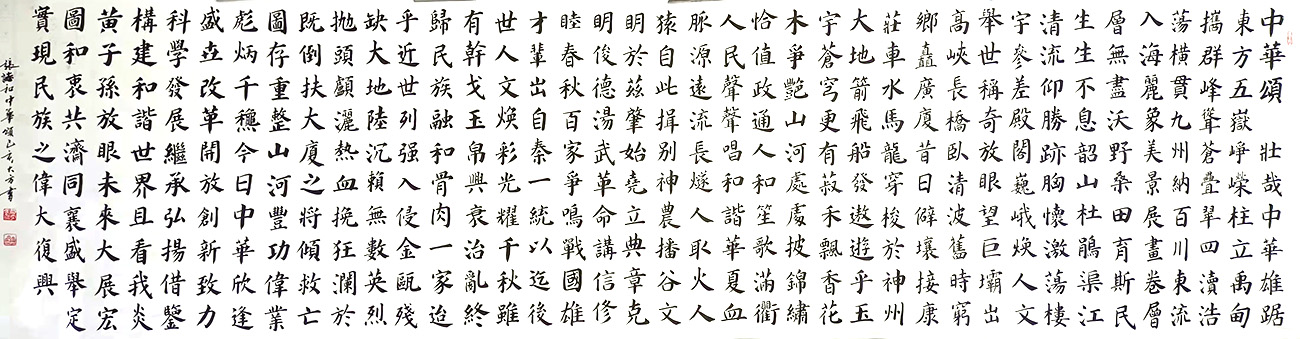 中華頌 壯哉中華雄踞
東方五嶽崢嶸柱立禹甸
攜群峰聳蒼疊翠四瀆浩
蕩橫貫九州納百川東流
入海麗象美景展畫卷層
層無盡沃野桑田育斯民
生生不息韶山杜鵑渠江
清流仰勝跡胸懷激蕩樓
宇參差殿閣巍峨煥人文
舉世稱奇放眼望巨壩出
高峽長橋臥清波舊時窮
鄉矗廣廈昔日僻壤接康
莊車水馬龍穿梭於神州
大地箭飛船發遨遊乎玉
宇蒼穹更有菽禾飄香花
木爭艷山河處處披錦繡
恰值政通人和笙歌滿衢
人民聲聲唱和諧華夏血
脈源遠流長燧人取火人
猿自此揖別神農播谷文
明於茲肇始堯立典章克
明俊德湯武革命講信修
睦春秋百家爭鳴戰國雄
才輩出自秦一統以迄後
世人文煥彩光耀千秋雖
有幹戈玉帛興衰治亂終
歸民族融和骨肉一家迨
乎近世列强入侵金甌殘
缺大地陸沉賴無數英烈
拋頭顱灑熱血挽狂瀾於
既倒扶大廈之將傾救亡
圖存重整山河豐功偉業
彪炳千穐今日中華欣逢
盛世改革開放創新致力
科學發展繼承弘揚借鑒
構建和諧世界且看我炎
黃子孫放眼未來大展宏
圖和衷共濟同襄盛舉定
實現民族之偉大復興
中華頌己亥